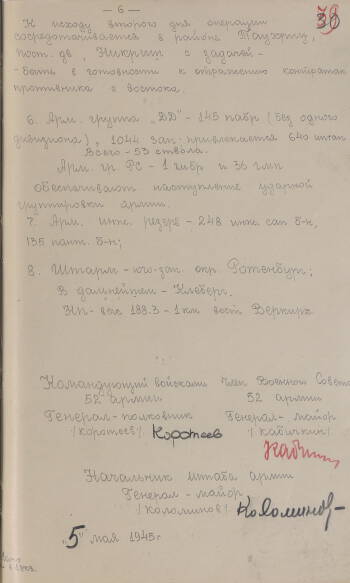 — 6 —
К исходу второго дня операции
сосредотачивается в районе
пост. дв. Никриш с задачей -
быть в готовности к отражению контратак
противника с востока.
6. Арм. группа "ДД" - 145 пабр (без одного
дивизиона), 1044 зап. привлекается 640 иптап
Всего - 53 ствола.
Арм. гр. РС - 1 гмбр и 36 гмп
обеспечивают наступление ударной
группировки армии.
7. Арм. инж. резерв - 248 инж. сап б-н,
135 понт. б-н;
8. Штарм - юго-зап. окр. Ротенбург;
В дальнейшем - Клеберг.
НП - выс. 188.3 - 1 км вост Веркирх
Командующий войсками Член Военного Совета
52 армии 52 армии
Генерал-полковник Генерал-майор
/Коротеев/ Коротеев /Кабичкин/
Начальник штаба армии
Генерал-майор
/Коломинов/ Коломинов
"5" мая 1945г.